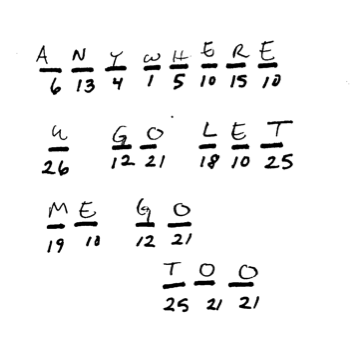 A N Y W H E R E
6 13 4 1 5 10 15 10
U G O L E T
26 12 21 18 10 25
M E G O
19 10 12 21
T O O
25 21 21